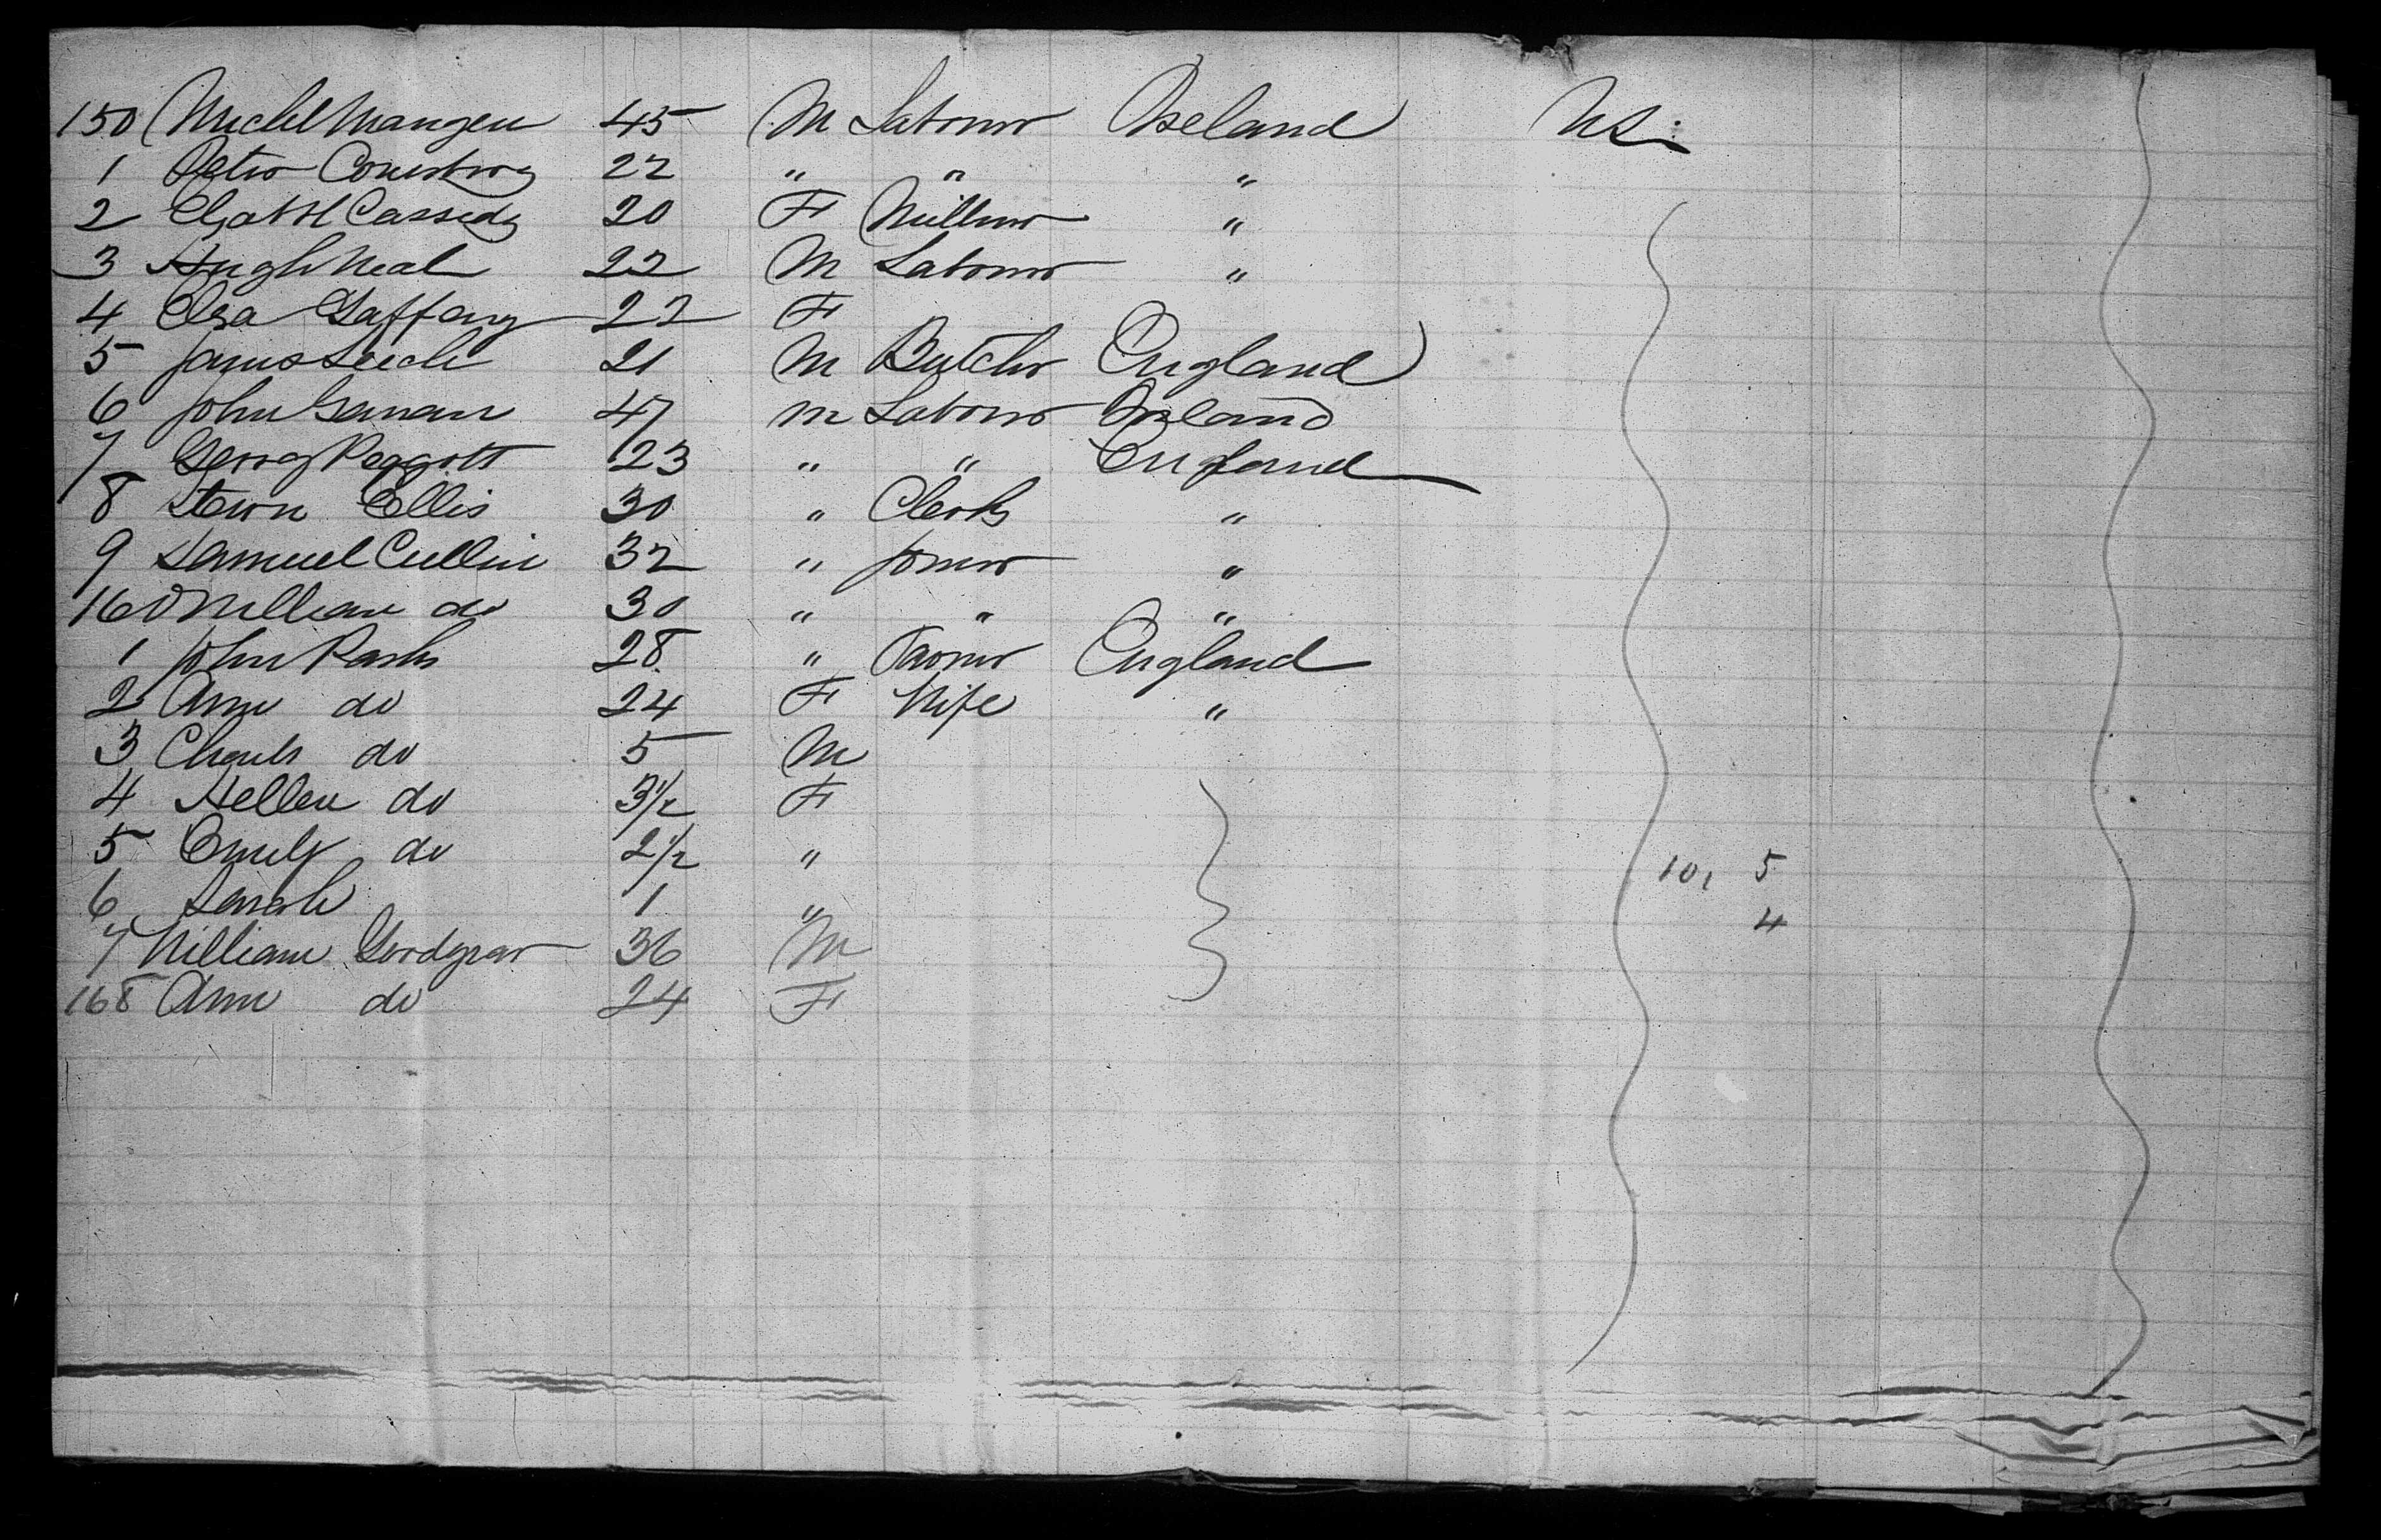 150 Michl Mangen 45 M Labourer Ireland US.
1 Peter 22 " " "
2 Elizabth Cassedy 20 F Milliner "
3 Hugh Neal 22 M Labourer "
4 Elsa Gaffeny 22 F
5 James Leech 21 M Butcher England
6 John Ganan 47 m Labourer Ireland
7 Georg Peggott 23 " " England
8 Ellis 30 " Clerk "
9 Samuel Cullin 32 " Joiner "
160 William do 30 " " "
1 John Parks 28 " Farmer England
2 Ann do 24 F Wife "
3 Charls do 5 M
4 Hellen do 3½ F
5 Emily do 2½ " 10, 5
6 Sarah 1 " 4
7 William 36 M
168 Ann do 24 F